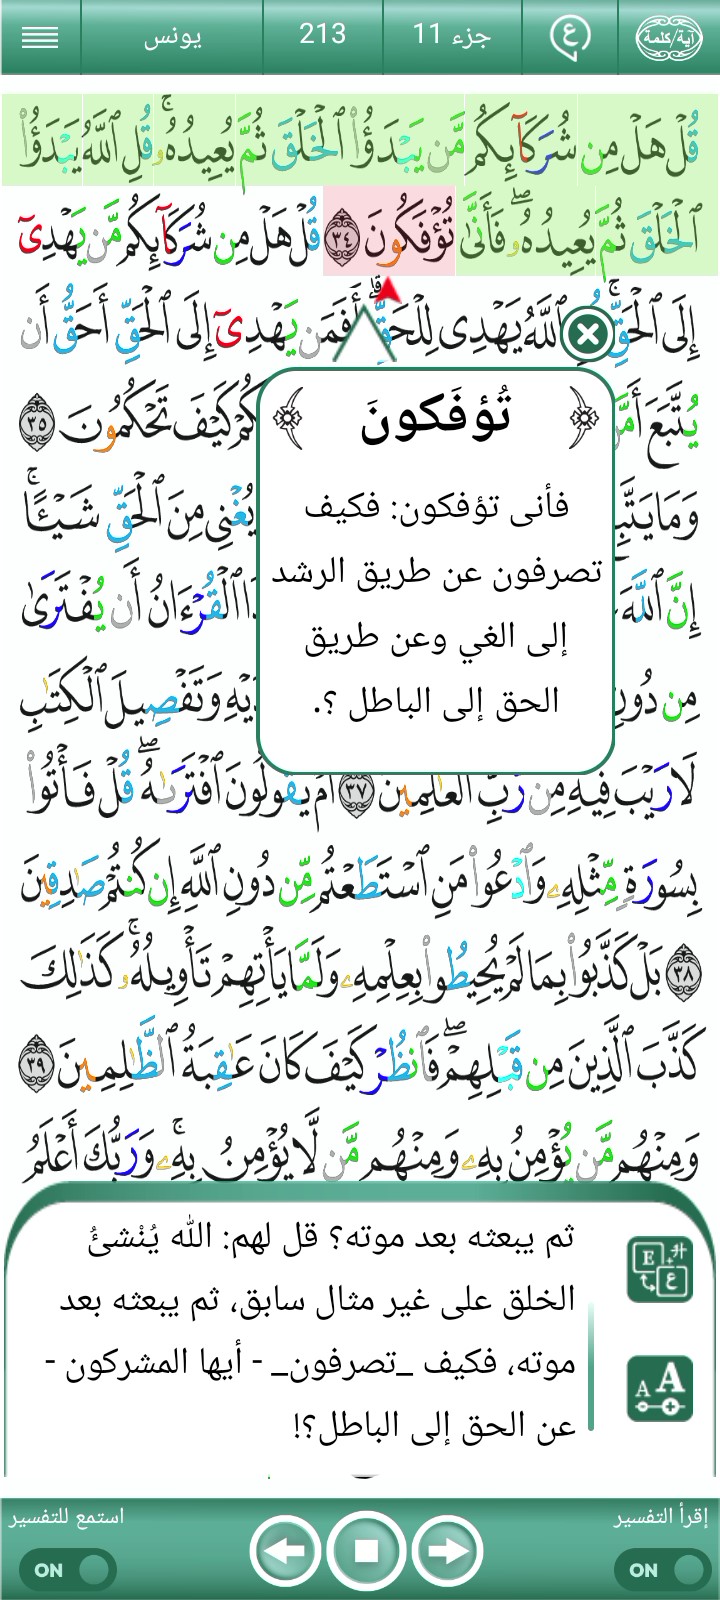 آية/كلمة ع جزء 11 213 يونس
قُلْ هَلْ مِن شُرَكَآئِكُم مَّن يَبْدَؤُا۟ ٱلْخَلْقَ ثُمَّ يُعِيدُهُۥ ۚ قُلِ ٱللَّهُ يَبْدَؤُا۟
ٱلْخَلْقَ ثُمَّ يُعِيدُهُۥ ۖ فَأَنَّىٰ تُؤْفَكُونَ ٣٤ قُلْ هَلْ مِن شُرَكَآئِكُم مَّن يَهْدِىٓ
إِلَى ٱلْحَقِّ ۚ ٱللَّهُ يَهْدِى لِلْحَقِّ ۗ أَفَمَن يَهْدِىٓ إِلَى ٱلْحَقِّ أَحَقُّ أَن
يُتَّبَعَ كَيْفَ تَحْكُمُونَ ٣٥
وَمَا يُغْنِى مِنَ ٱلْحَقِّ شَيْـًٔا ۚ
إِنَّ ٱللَّهَ ٱلْقُرْءَانُ أَن يُفْتَرَىٰ
مِن دُونِ وَتَفْصِيلَ ٱلْكِتَٰبِ
لَا رَيْبَ فِيهِ مِن رَّبِّ ٱلْعَٰلَمِينَ ٣٧ أَمْ يَقُولُونَ ٱفْتَرَىٰهُ ۖ قُلْ فَأْتُوا۟
بِسُورَةٍ مِّثْلِهِۦ وَٱدْعُوا۟ مَنِ ٱسْتَطَعْتُم مِّن دُونِ ٱللَّهِ إِن كُنتُمْ صَٰدِقِينَ
٣٨ بَلْ كَذَّبُوا۟ بِمَا لَمْ يُحِيطُوا۟ بِعِلْمِهِۦ وَلَمَّا يَأْتِهِمْ تَأْوِيلُهُۥ ۚ كَذَٰلِكَ
كَذَّبَ ٱلَّذِينَ مِن قَبْلِهِمْ ۖ فَٱنظُرْ كَيْفَ كَانَ عَٰقِبَةُ ٱلظَّٰلِمِينَ ٣٩
وَمِنْهُم مَّن يُؤْمِنُ بِهِۦ وَمِنْهُم مَّن لَّا يُؤْمِنُ بِهِۦ ۚ وَرَبُّكَ أَعْلَمُ
﴿ تُؤْفَكُونَ ﴾
فأنى تؤفكون: فكيف
تصرفون عن طريق الرشد
إلى الغي وعن طريق
الحق إلى الباطل ؟.
ثم يبعثه بعد موته؟ قل لهم: الله يُنْشئُ
الخلق على غير مثال سابق، ثم يبعثه بعد
موته، فكيف _تصرفون_ - أيها المشركون -
عن الحق إلى الباطل؟!
إقرأ التفسير استمع للتفسير
ON ON